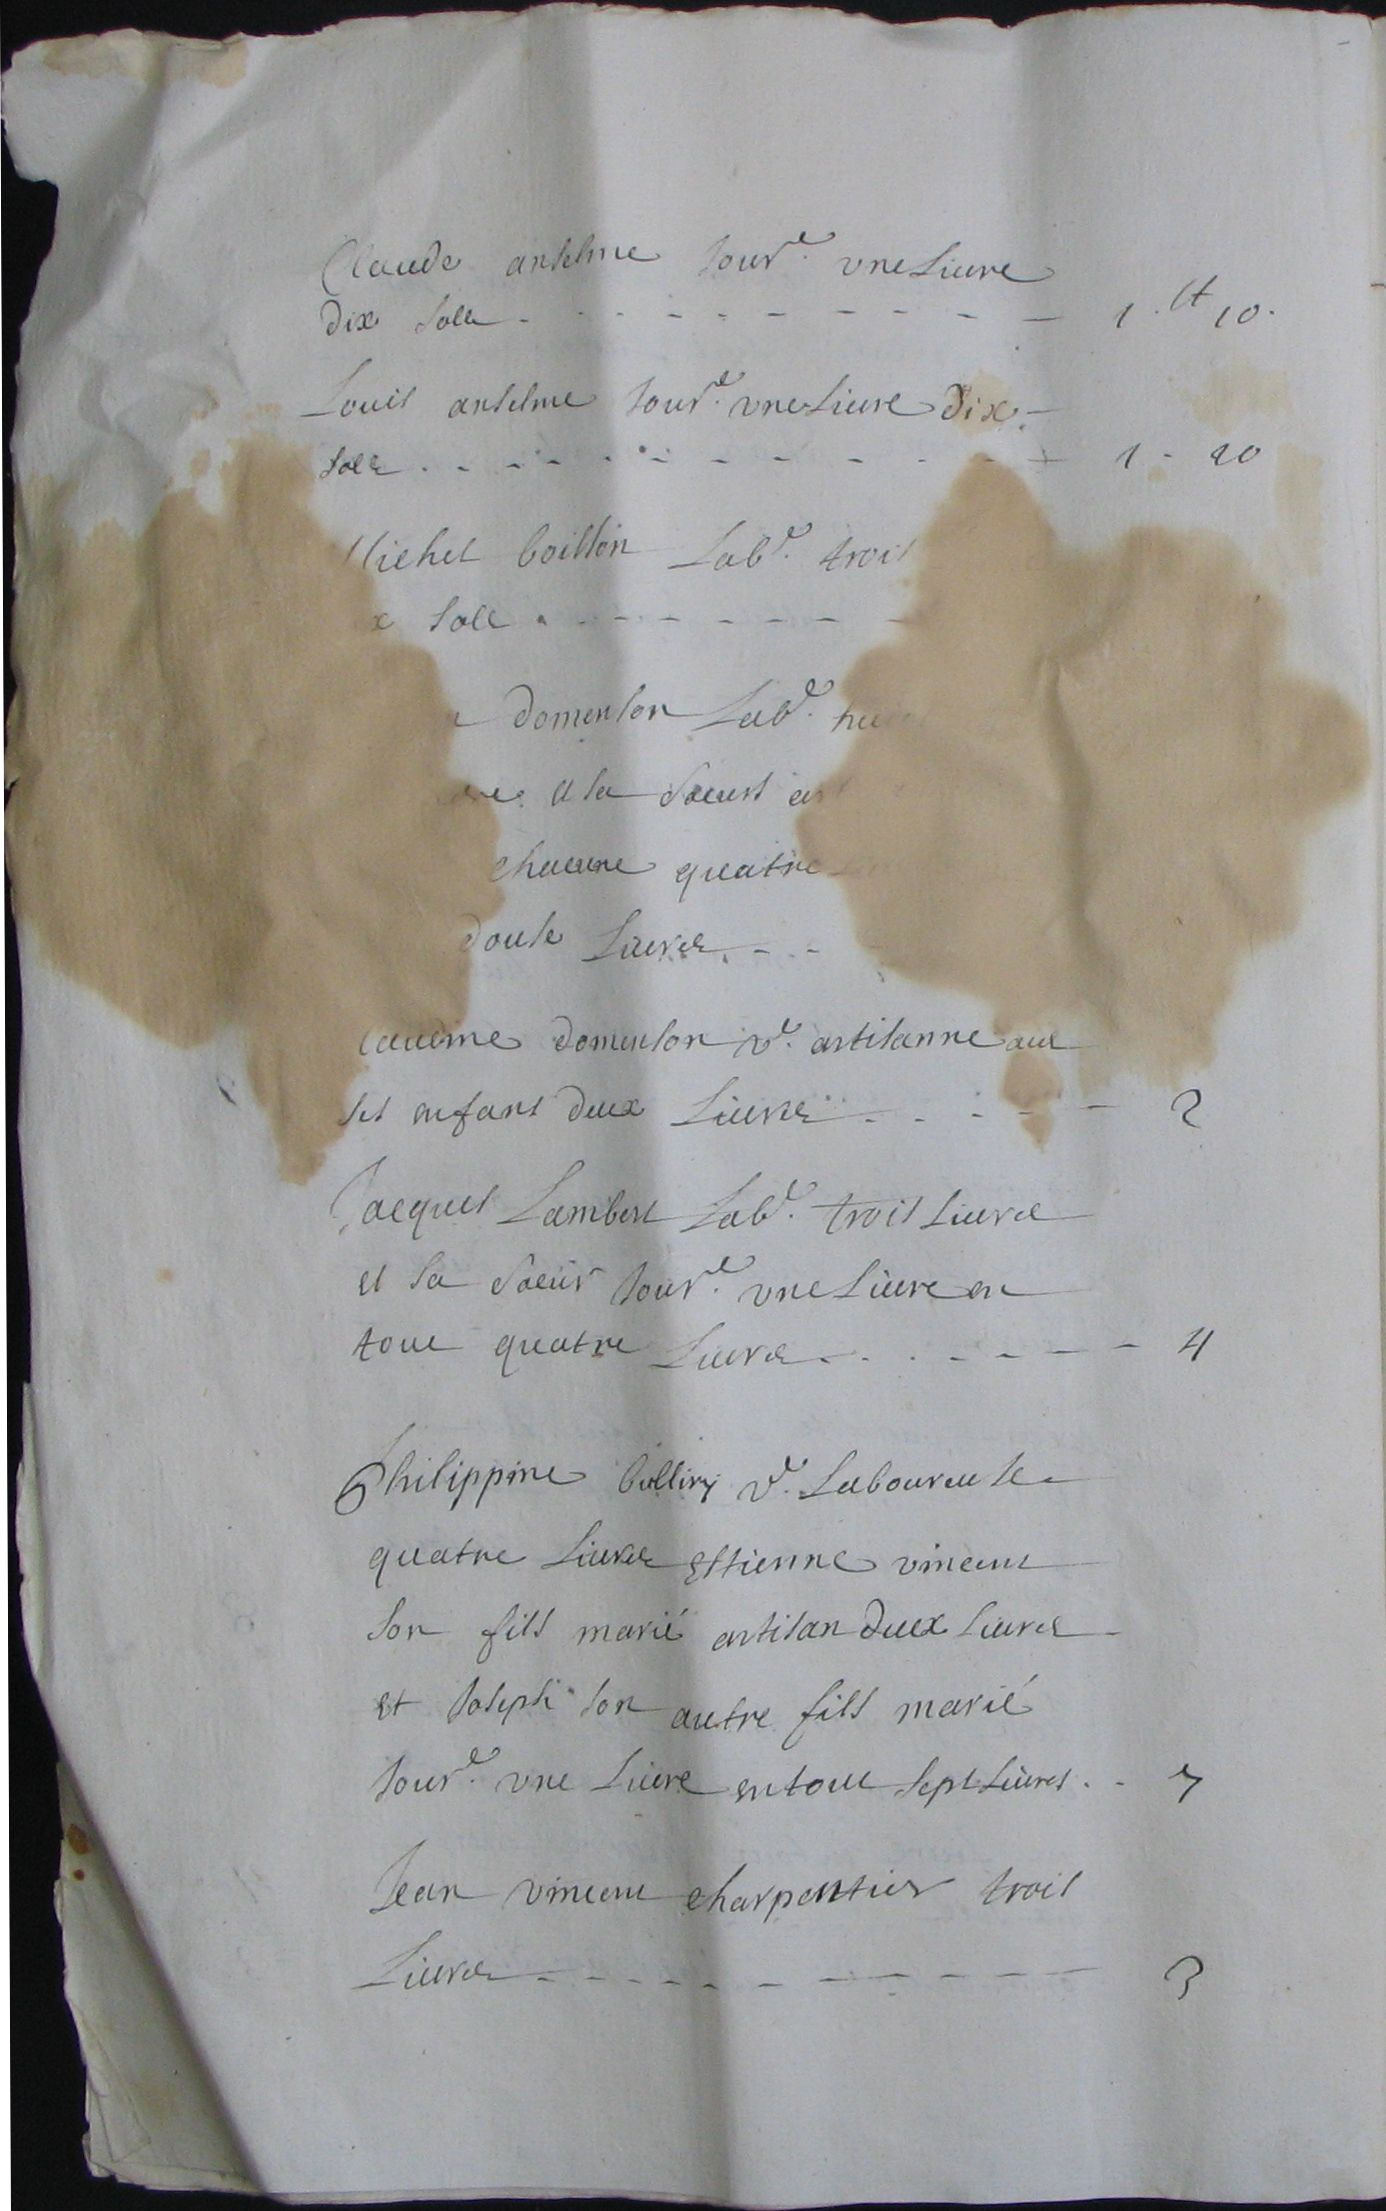 Claude anselme Jour.e une Livre
dix solz - - - - - - - - - - 1 lt 10.
Louis anselme Jour.e une Livre dix
solz - - - - - - - - - - 1 - 10
Michel boisson Lab.r trois
x solz - - - - - -
domenson Lab.r hui
et sa soeurs
chacune quatre
douse Livres - - -
domenson v.e artisanne avec
ses enfans deux Livres - - - - - 2
Jacques Lambert Lab.r trois Livres
et sa soeur Jour.e une Livre en
tout quatre Livres - - - - - - 4
Philippine v.e Laboureuse
quatre Livres Estienne vincent
son fils marié artisan deux Livres
et Joseph son autre fils marié
Jour.e une Livre en tout sept Livres - - 7
Jean vincent charpentier trois
Livres - - - - - - - - - - 3